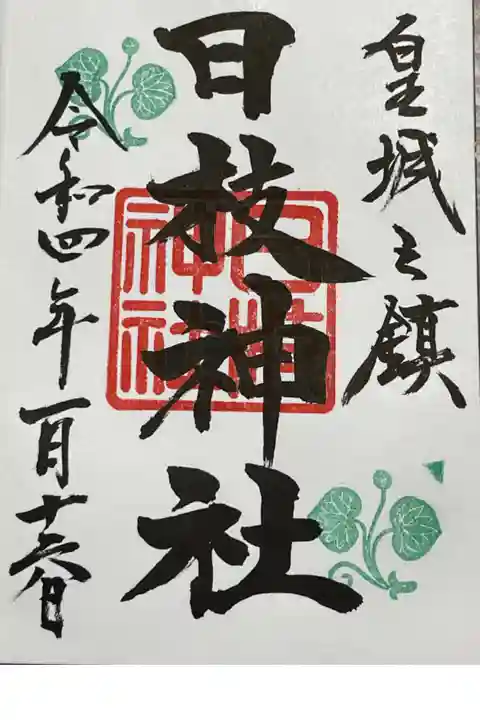 皇城之鎮
日枝神社
日枝神社
令和四年一月十日